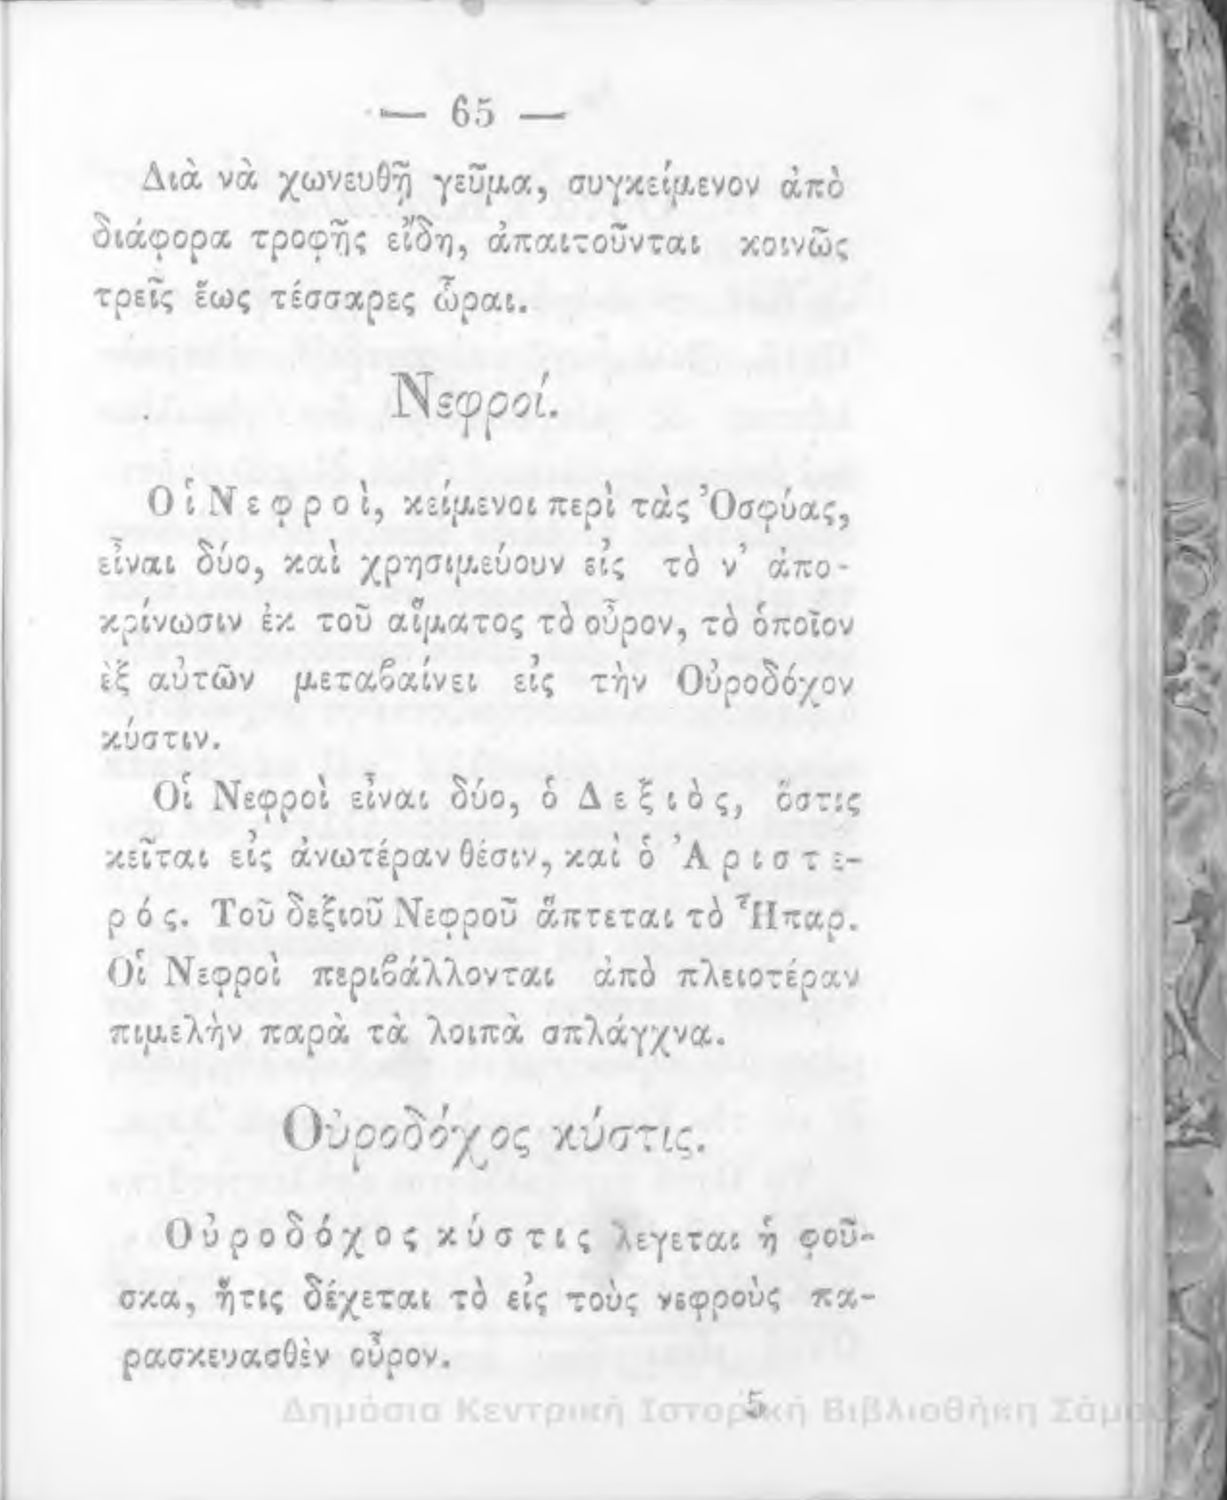 — 65 —
Διὰ νὰ χωνευθῇ γεῦμα, συγκείμενον ἀπὸ
διάφορα τροφῆς εἴδη, ἀπαιτοῦνται κοινῶς
τρεῖς ἕως τέσσαρες ὧραι.
Νεφροί.
Οἱ Νεφροὶ, κείμενοι περὶ τὰς Ὀσφύας,
εἶναι δύο, καὶ χρησιμεύουν εἰς τὸ ν' ἀπο-
κρίνωσιν ἐκ τοῦ αἵματος τὸ οὖρον, τὸ ὁποῖον
ἐξ αὐτῶν μεταβαίνει εἰς τὴν Οὐροδόχον
κύστιν.
Οἱ Νεφροὶ εἶναι δύο, ὁ Δεξιὸς, ὅστις
κεῖται εἰς ἀνωτέραν θέσιν, καὶ ὁ Ἀριστε-
ρός. Τοῦ δεξιοῦ Νεφροῦ ἅπτεται τὸ Ἧπαρ.
Οἱ Νεφροὶ περιβάλλονται ἀπὸ πλειοτέραν
πιμελὴν παρὰ τὰ λοιπὰ σπλάγχνα.
Οὐροδόχος κύστις.
Οὐροδόχος κύστις λεγεται ἡ φοῦ-
σκα, ἥτις δέχεται τὸ εἰς τοὺς νεφροὺς πα-
ρασκευασθὲν οὖρον.
5
Δημόσια Κεντρική Ιστορική Βιβλιοθήκη Σάμου